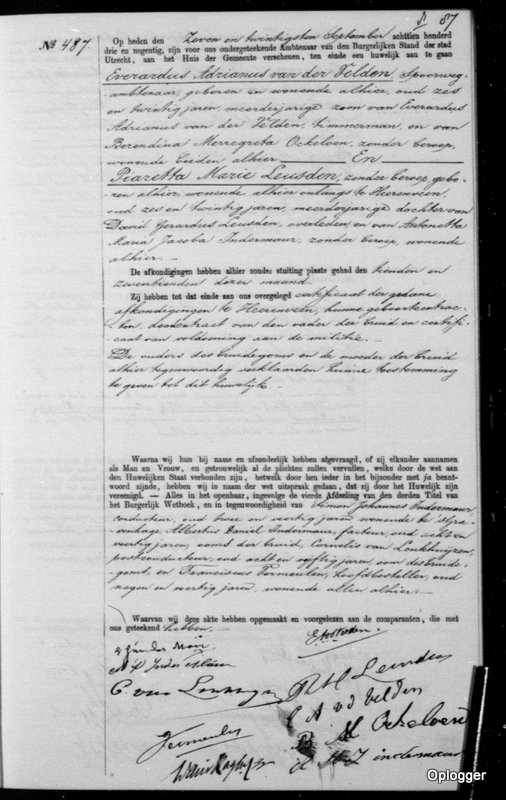 87
No 487.
Op heden den Zeven en twintigsten September achttien honderd
drie en negentig, zijn voor ons ondergeteekende Ambtenaar van den Burgerlijken Stand der stad
Utrecht, aan het Huis der Gemeente verschenen, ten einde een huwelijk aan te gaan
Everardus Adrianus van der Velden, Spoorweg-
ambtenaar, geboren en wonende alhier, oud zes
en twintig jaren, meerderjarige zoon van Everardus
Adrianus van der Velden, timmerman, en van
Berendina Merregreta Ockeloen, zonder beroep,
wonende beiden alhier. En
Piaretta Marie Leusden, zonder beroep, gebo-
ren alhier, wonende alhier onlangs te Heerenveen,
oud zes en twintig jaren, meerderjarige dochter van
David Gerardus Leusden, overleden, en van Antonetta
Maria Jacoba Indermaur, zonder beroep, wonende
alhier.
De afkondigingen hebben alhier zonder stuiting plaats gehad den tienden en
zeventienden dezer maand.
Zij hebben tot dat einde aan ons overgelegd certificaat der gedane
afkondigingen te Heerenveen, hunne geboorteextrac-
ten, doodextract van den vader der bruid en certifi-
caat van voldoening aan de militie.
De ouders des bruidegoms en de moeder der bruid
alhier tegenwoordig verklaarden hunne toestemming
te geven tot dit huwelijk.
Waarna wij hun bij name en afzonderlijk hebben afgevraagd, of zij elkander aannamen
als Man en Vrouw, en getrouwelijk al de plichten zullen vervullen, welke door de wet aan
den Huwelijken Staat verbonden zijn, hetwelk door hen ieder in het bijzonder met ja beant-
woord zijnde, hebben wij in naam der wet uitspraak gedaan, dat zij door het Huwelijk zijn
vereenigd. — Alles in het openbaar, ingevolge de vierde Afdeeling van den derden Titel van
het Burgerlijk Wetboek, en in tegenwoordigheid van Simon Johannes Indermaur,
conducteur, oud twee en veertig jaren wonende te 's Gra-
venhage Albertus Daniel Indermaur, factour, oud acht en
veertig jaren ooms der bruid, Cornelis van Lonkhuijzen,
postconducteur, oud acht en vijftig jaren oom des bruide-
goms, en Franciscus Vermeulen, hoofdbesteller, oud
negen en veertig jaren, wonende allen alhier.
Waarvan wij deze akte hebben opgemaakt en voorgelezen aan de comparanten, die met
ons geteekend hebben.
C. van
Leusden
E A vd Velden
Vermeulen
B M Ockeloen
M J indermaur
Oplogger